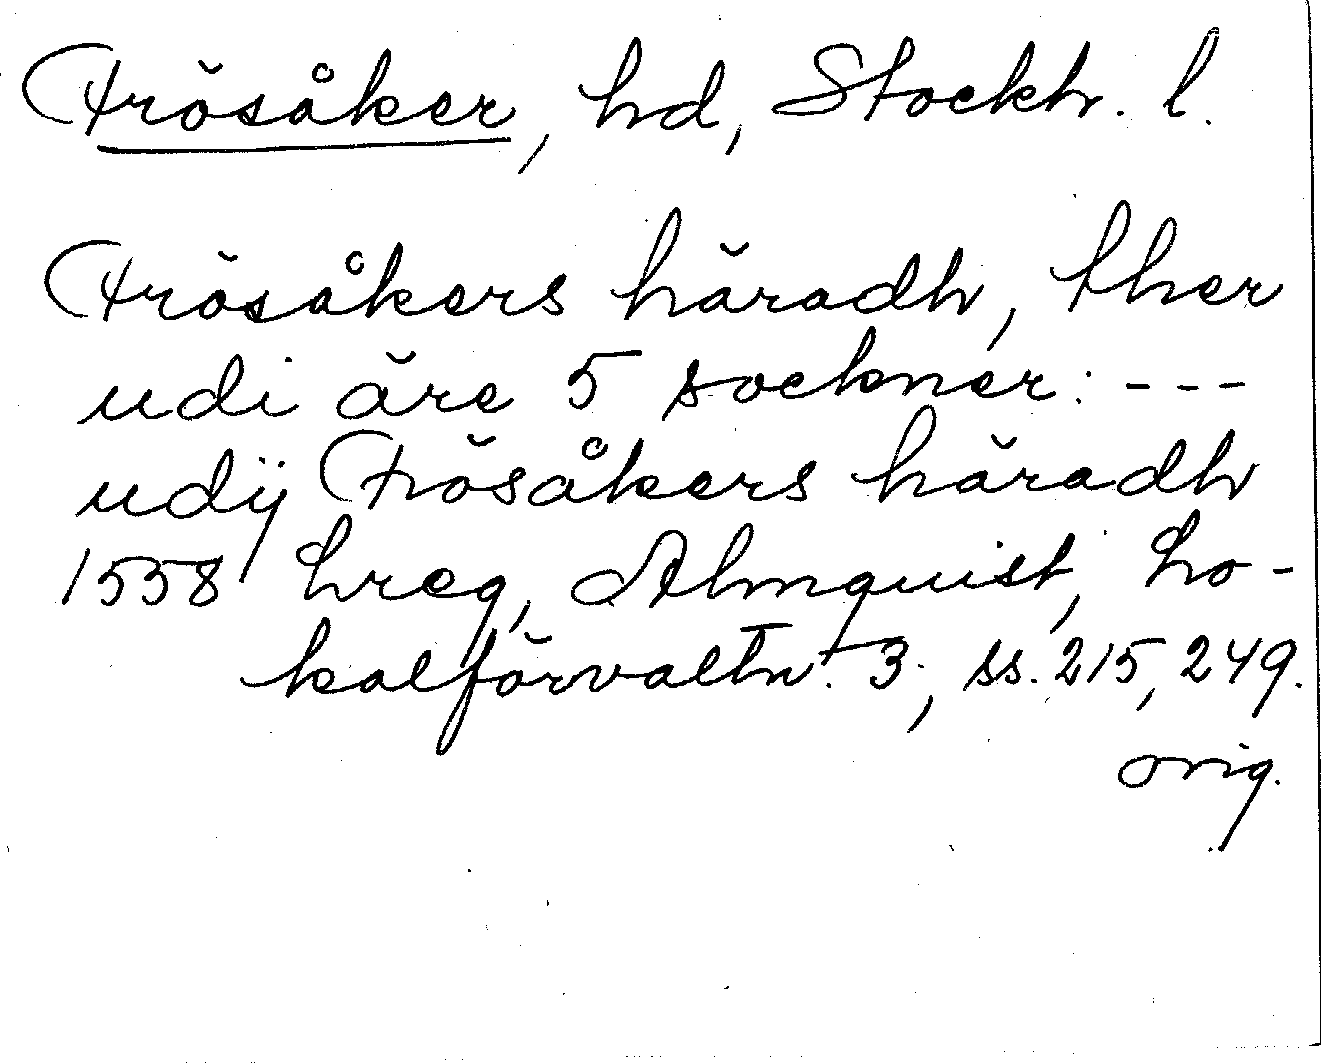 Frösåker, hd, Stockh. l.
Frösåkers häradh, ther
udi äre 5 sockner: ---
udÿ Frösåkers häradh
1558 hreg, Almquist, Lo-
kalförvaltn. 3, ss. 215, 249.
orig.